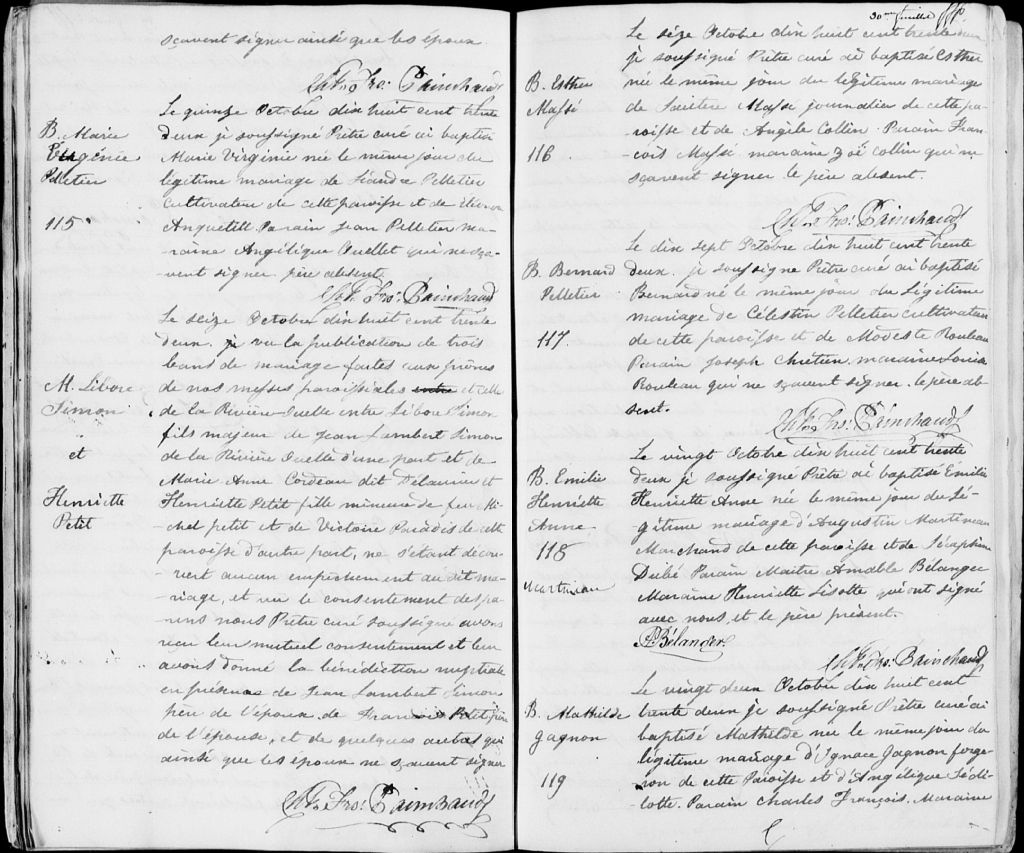 sçavent signer ainsi que les époux.
Chs Frs: Painchaud
Le quinze Octobre dix huit cent trente
B. Marie
Virginie
Pelletier
115
deux je soussigné Prêtre curé ai baptisé
Marie Virginie née le même jour du
légitime mariage de Léandre Pelletier
cultivateur de cette paroisse et de
Anquetill Parain Jean Pelletier ma-
-raine Angélique Ouellet qui ne sça-
-vent signer père absent.
Chs Frs: Painchaud
Le seize Octobre dix huit cent trente
deux. vu la publication de trois
bans de mariage faites aux prônes
M. Libore
Simon
et
Henriette
Petit
de nos messes paroissiales entre et celle
de la Rivière Ouelle entre Libore Simon
fils majeur de Jean Lambert Simon
de la Rivière Ouelle d'une part et de
Marie Anne Cordeau dit Delaurier et
Henriette Petit fille mineure de feu Mi-
chel petit et de Victoire Paradis de cette
paroisse d'autre part, ne s'étant décou-
-vert aucun empêchement au dit ma-
-riage, et vu le consentement des pa-
-rens nous Prêtre curé soussigné avons
reçu leur mutuel consentement et leur
avons donné la bénédiction nuptiale
en présence de Jean Lambert Simon
père de l'époux de François Petit
de l'épouse, et de quelques autres qui
ainsi que les époux ne sçavent signer
Chs Frs: Painchaud
30me feuillet
Le seize Octobre dix huit cent trente deux
B. Esther
Massé
116
je soussigné Prêtre curé ai baptisé Esther
née le même jour du légitime mariage
de Massé journalier de cette pa-
roisse et de Angèle Collin. Parain Fran-
-çois Massé maraine Zoë Collin qui ne
sçavent signer le père absent.
Chs Frs: Painchaud
Le dix sept Octobre dix huit cent trente
B. Bernard
Pelletier
117.
deux. je soussigné Prêtre curé ai baptisé
Bernard né le même jour du légitime
mariage de Célestin Pelletier cultivateur
de cette paroisse et de Modeste Rouleau
Parain Joseph Chrétien maraine Louise
Rouleau qui ne sçavent signer le père ab-
sent.
Chs Frs: Painchaud
Le vingt Octobre dix huit cent trente
B. Emilie
Henriette
Anne
118
Martineau
deux je soussigné Prêtre ai baptisé Emilie
Henriette Anne née le même jour de lé-
-gitime mariage d'Augustin Martineau
Marchand de cette paroisse et de Séraphine
Dubé Parain Maitre Amable Bélanger
Maraine Henriette Lisotte qui ont signé
avec nous et le père présent.
A. Bélanger.
Chs Frs: Painchaud
Le vingt deux Octobre dix huit cent
B. Mathilde
Gagnon
119
trente deux je soussigné Prêtre curé ai
baptisé Mathilde née le même jour du
légitime mariage d'Ignace Gagnon forge-
-ron de cette Paroisse et d'Angélique Sédi-
-lotte. Parain Charles François. Maraine